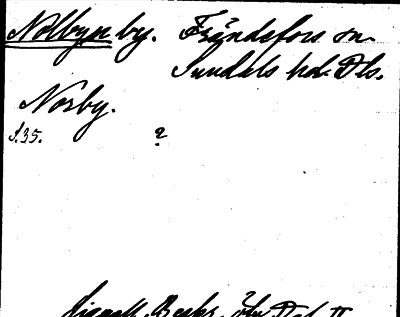 Nolbyn by. Frändefors sn.
Sundals hd. Dls.
Norby.
s. 35. ?
Lignell, Beskr. öfv. Dal II